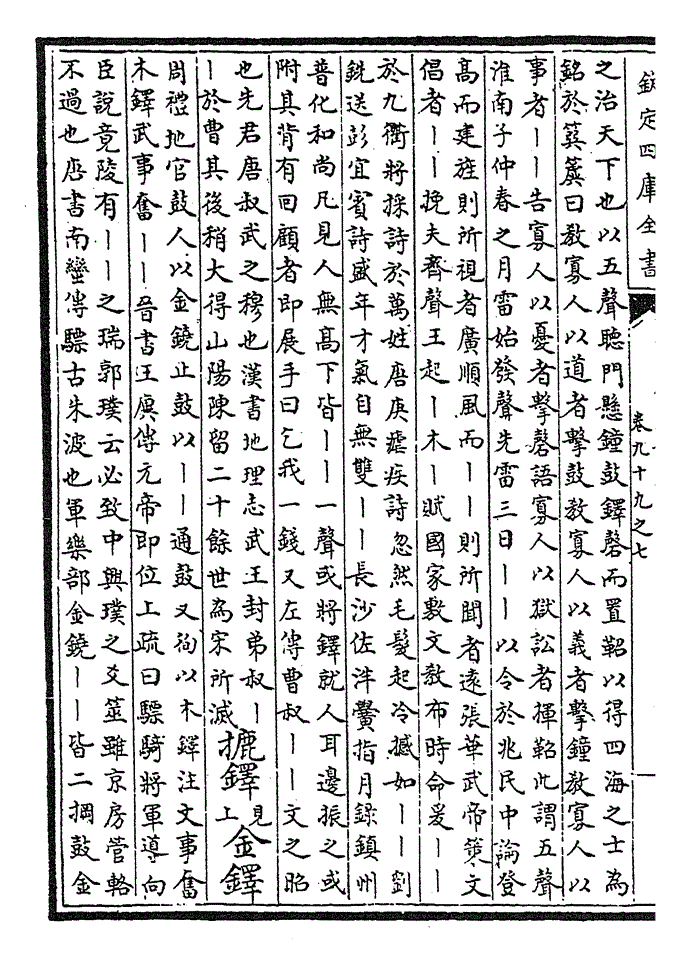 欽定四庫全書
卷九十九之七
一
之治天下也以五聲聽門懸鐘鼓鐸磬而置鞀以得四海之士為
銘於簨簴曰教寡人以道者擊鼓教寡人以義者擊鐘教寡人以
事者丨丨告寡人以憂者擊磬語寡人以獄訟者揮鞀此謂五聲
淮南子仲春之月雷始發聲先雷三日丨丨以令於兆民中論登
高而建旌則所視者廣順風而丨丨則所聞者遠張華武帝策文
倡者丨丨挽夫齊聲王起丨木丨賦國家敷文教布時命爰丨丨
於九衢將採詩於萬姓唐庚瘧疾詩忽然毛髮起冷撼如丨丨劉
銑送彭宜賓詩盛年才氣自無雙丨丨長沙佐泮黌指月錄鎮州
普化和尚凡見人無高下皆丨丨一聲或將鐸就人耳邊振之或
附其背有回顧者即展手曰乞我一錢又左傳曹叔丨丨文之昭
也先君唐叔武之穆也漢書地理志武王封弟叔丨
丨於曹其後稍大得山陽陳留二十餘世為宋所滅
摝鐸
見上
金鐸
周禮地官鼓人以金鐃止鼓以丨丨通鼓又徇以木鐸注文事奮
木鐸武事奮丨丨晉書王廙傳元帝即位上疏曰驃騎將軍導向
臣說竟陵有丨丨之瑞郭璞云必致中興璞之爻筮雖京房管輅
不過也唐書南蠻傳驃古朱波也軍樂部金鐃丨丨皆二掆鼓金